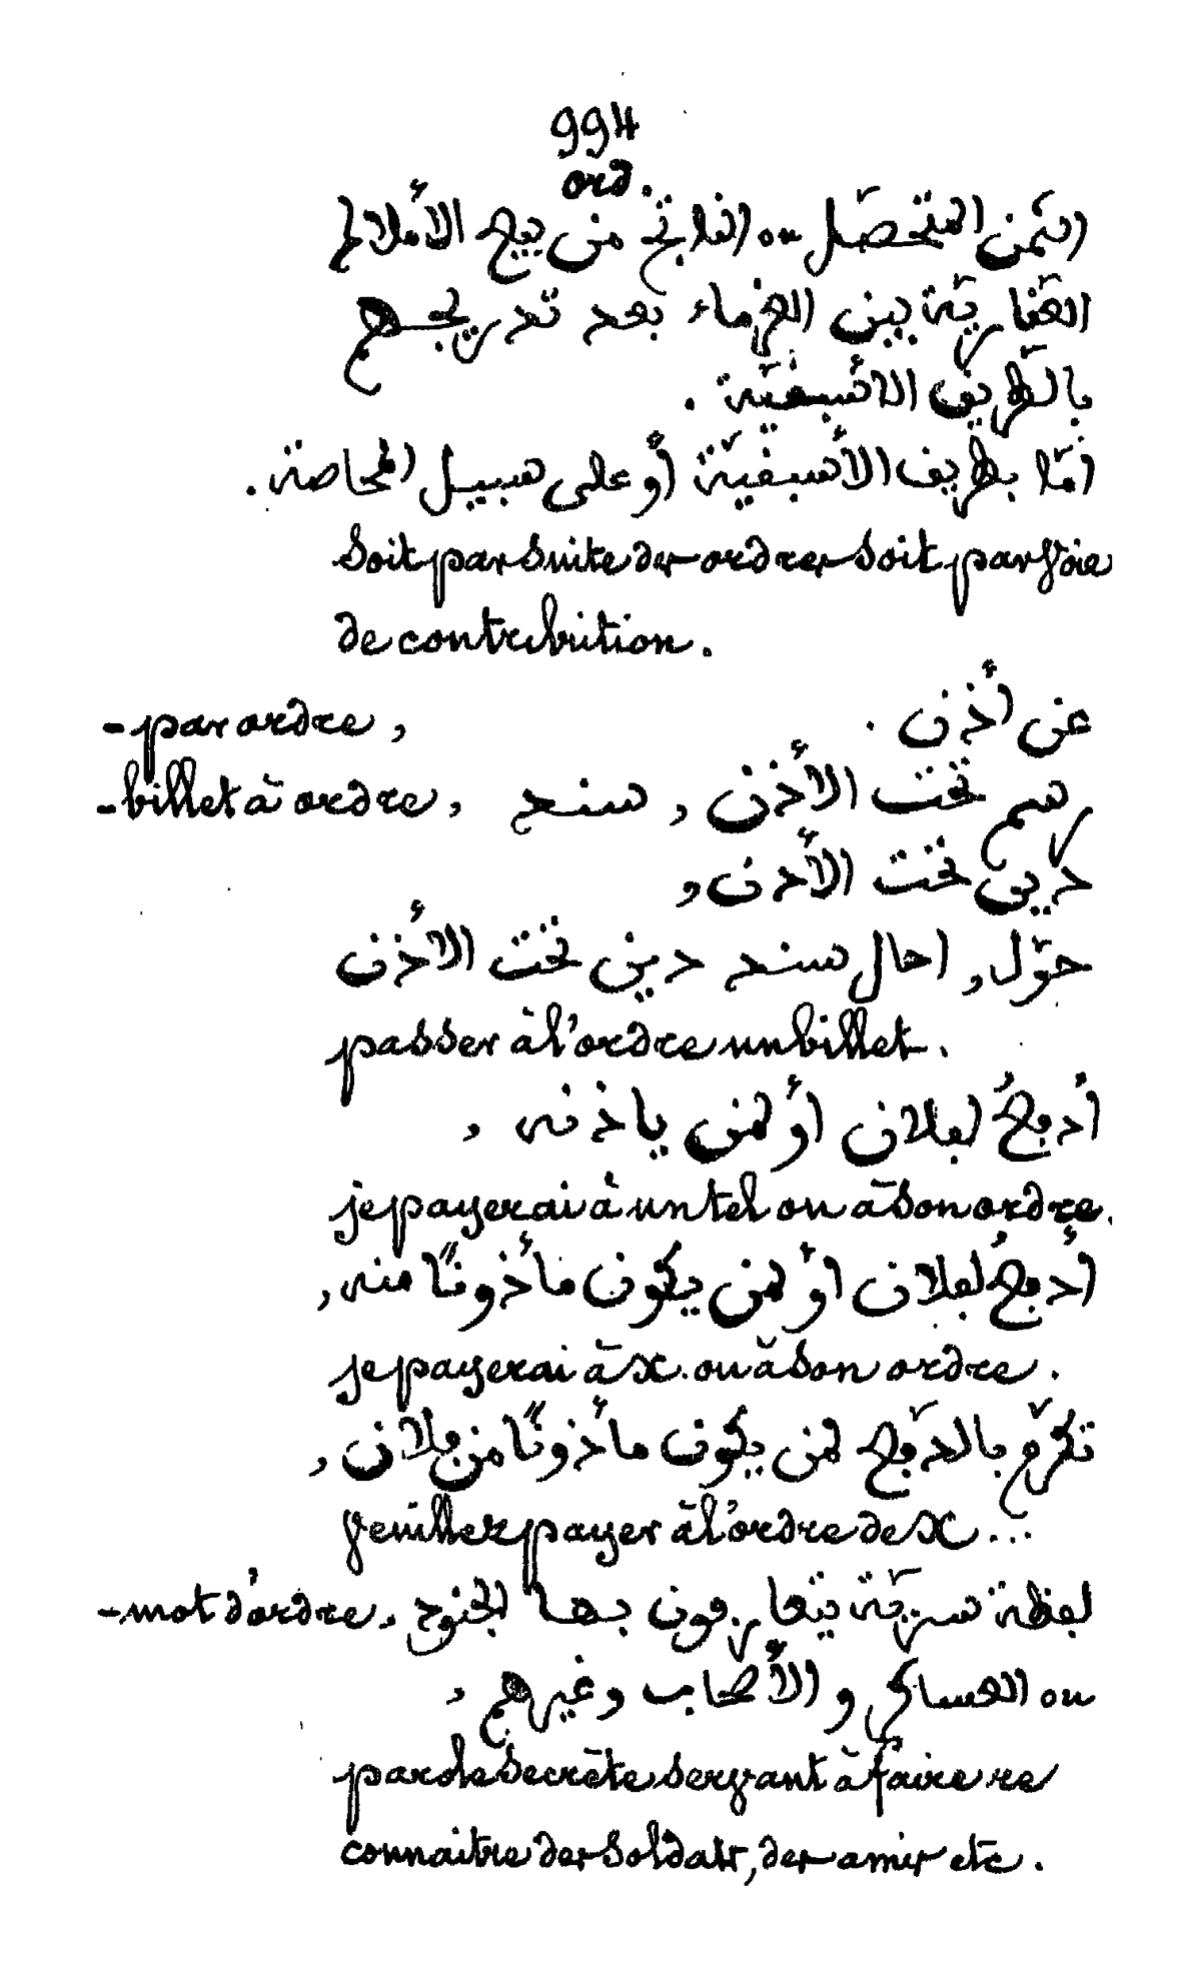 994
ord.
الثمن المتحصّل ou الناتج من بيع الأملاك
العقاريّة بين الغرماء بعد تدريجهم
بالطّريق الأسبقيّة .
امّا بطريق الأسبقيّة أو على سبيل المحاصة .
soit par suite des ordres soit par voie
de contribution .
- par ordre , عن أذن .
- billet à ordre , رسم تحت الأذن , سند
دين تحت الأذن ,
حوّل , احال سند دين تحت الأذن
passer à l'ordre un billet .
أدفعُ لفلان أو لمن ياذنه ,
je payerai à un tel ou à son ordre .
أدفعُ لفلان أو لمن يكون مأذونًا منه ,
je payerai à x . ou à son ordre .
تكرّم بالدّفع لمن يكون مأذونًا من فلان ,
veuillez payer à l'ordre de x ...
- mot d'ordre , لفظة سرّيّة يتعارفون بها الجنود
ou العساكر و الأصحاب وغيرهم ,
parole secrète servant à faire re
connaitre des soldats , des amis etc .